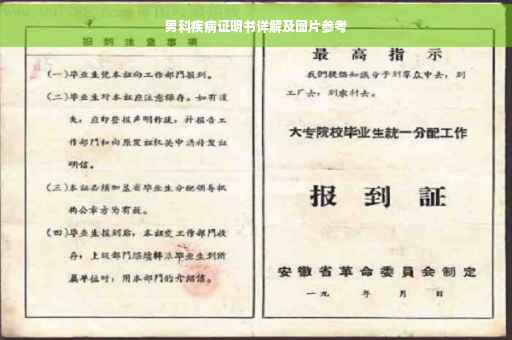 男科疾病证明书详解及图片参考
报到注意事项
(一)毕业生凭本证向工作部门报到。
(二)毕业生对本证应注意保存。如有遗
失,应即登报声明作废,并报告工
作部门和向原发证机关申请补发证
明信。
(三)本证必须加盖省毕业生分配领导机
构公章方为有效。
(四)毕业生报到后,本证交工作部门收
存;上级部门继续转派毕业生到所
属单位时,用本部门的介绍信。
最高指示
我们提倡知识分子到群众中去,到
工厂去,到农村去。
大专院校毕业生統一分配工作
报到証
安徽省革命委員会制定
一九 年 月 日